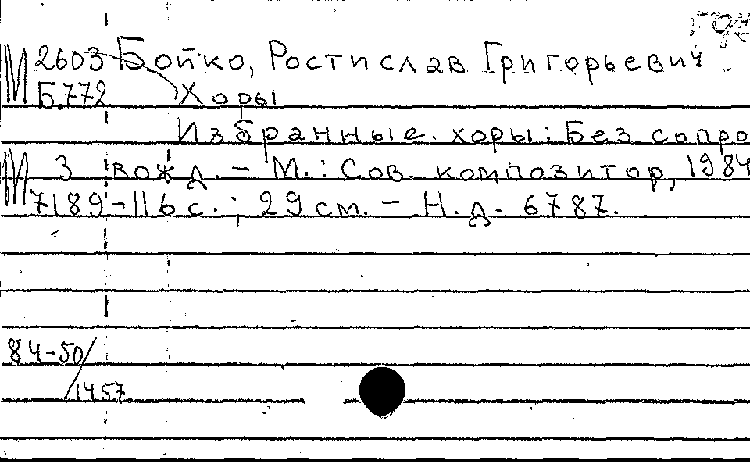 М 2603 Бойко, Ростислав Григорьевич
Б.772 Хоры
Избранные хоры: Без сопро
М 3 вожд. - М.: Сов. композитор, 1984
7189 - 116 с.; 29 см. - Н.д. 6787.
84-50/
1457